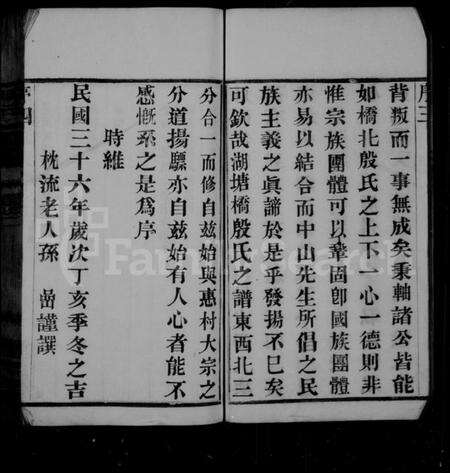 序三
背叛而一事無成矣秉軸諸公皆能
如橋北殷氏之上下一心一德則非
惟宗族團體可以鞏固卽國族團體
亦易以結合而中山先生所倡之民
族主義之眞諦於是乎發揚不已矣
可欽哉湖塘橋殷氏之譜東西北三
分合一而修自兹始與惠村大宗之
分道揚鑣亦自兹始有人心者能不
感慨系之是爲序
時維
民國三十六年歲次丁亥季冬之吉
枕流老人孫嵒謹譔
序四
FamilySearch